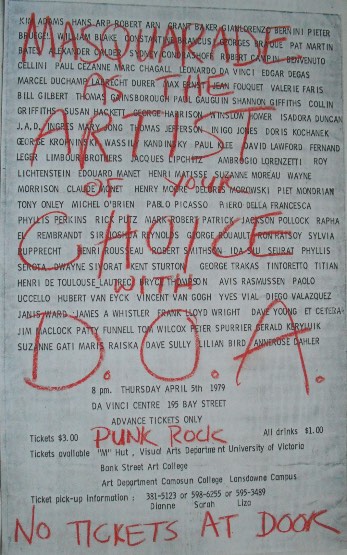 KIM ADAMS HANS ARP ROBERT ARN GRANT BAKER GIANLORENZO BERNINI PIETER
BRUEGEL WILLIAM BLAKE CONSTANTIN BRANCUSI GEORGES BRAQUE PAT MARTIN
BATES ALEXANDER CALDER SYDNEY ROBERT CAMPIN BENVENUTO
CELLINI PAUL CEZANNE MARC CHAGALL LEONARDO DA VINCI EDGAR DEGAS
MARCEL DUCHAMP ALBRECHT DURER MAX ERNST JEAN FOUQUET VALERIE FARIS
BILL GILBERT THOMAS GAINSBOROUGH PAUL GAUGUIN SHANNON GRIFFITHS COLIN
GRIFFITHS SUSAN HACKETT GEORGE HARRISON WINSLOW HOMER ISADORA DUNCAN
J.A.D. INGRES MARY KONG THOMAS JEFFERSON INIGO JONES DORIS KOCHANEK
GEORGE WASSILY KANDINSKY PAUL DAVID LAWFORD FERNAND
LEGER LIMBOURG BROTHERS JACQUES LIPCHITZ AMBROGIO LORENZETTI ROY
LICHTENSTEIN EDOUARD MANET HENRI MATISSE MOREAU WAYNE
MORRISON CLAUDE MONET HENRY MOORE DELORES PIET MONDRIAN
TONY ONLEY MICHEL O'BRIEN PABLO PICASSO PIERO DELLA FRANCESCA
PHYLLIS PERKINS RICK PUTZ MARK PATRICK JACKSON POLLOCK RAPHA
EL REMBRANDT SIR JOSHUA REYNOLDS GEORGE ROUAULT SYLVIA
RUPPRECHT HENRI ROUSSEAU ROBERT SMITHSON SEURAT PHYLLIS
SEROTA DWAYNE KENT STURTON GEORGE TRAKAS TINTORETTO TITIAN
HENRI DE TOULOUSE LAUTREC AVIS RASMUSSEN PAOLO
UCCELLO HUBERT VAN EYCK VINCENT VAN GOGH YVES VIAL DIEGO VALAZQUEZ
JANIS WARD JAMES A WHISTLER FRANK LLOYD WRIGHT DAVE YOUNG ET CETERA
JIM MACLOCK PATTY FUNNELL TOM WILCOX PEIER SPURRIER GERALD
SUZANNE GATI MARIS RAISKA DAVE SULLY LILIAN BIRD ANNEROSE DAHLER
MASQUERADE
AS THE
ARTIST
OF YOUR
CHOICE
WITH
D.O.A.
8 pm. THURSDAY APRIL 5th 1979
DA VINCI CENTRE 195 BAY STREET
ADVANCE TICKETS ONLY
Tickets $3.00 PUNK ROCK All drinks $1.00
Tickets available "M" Hut, Visual Arts Department University of Victoria
Bank Street Art College
Art Department Camosun College Lansdowne Campus
Ticket pick-up information : 381-5123 or 598-6255 or 595-3489
Dianne Sarah Liza
NO TICKETS AT DOOR